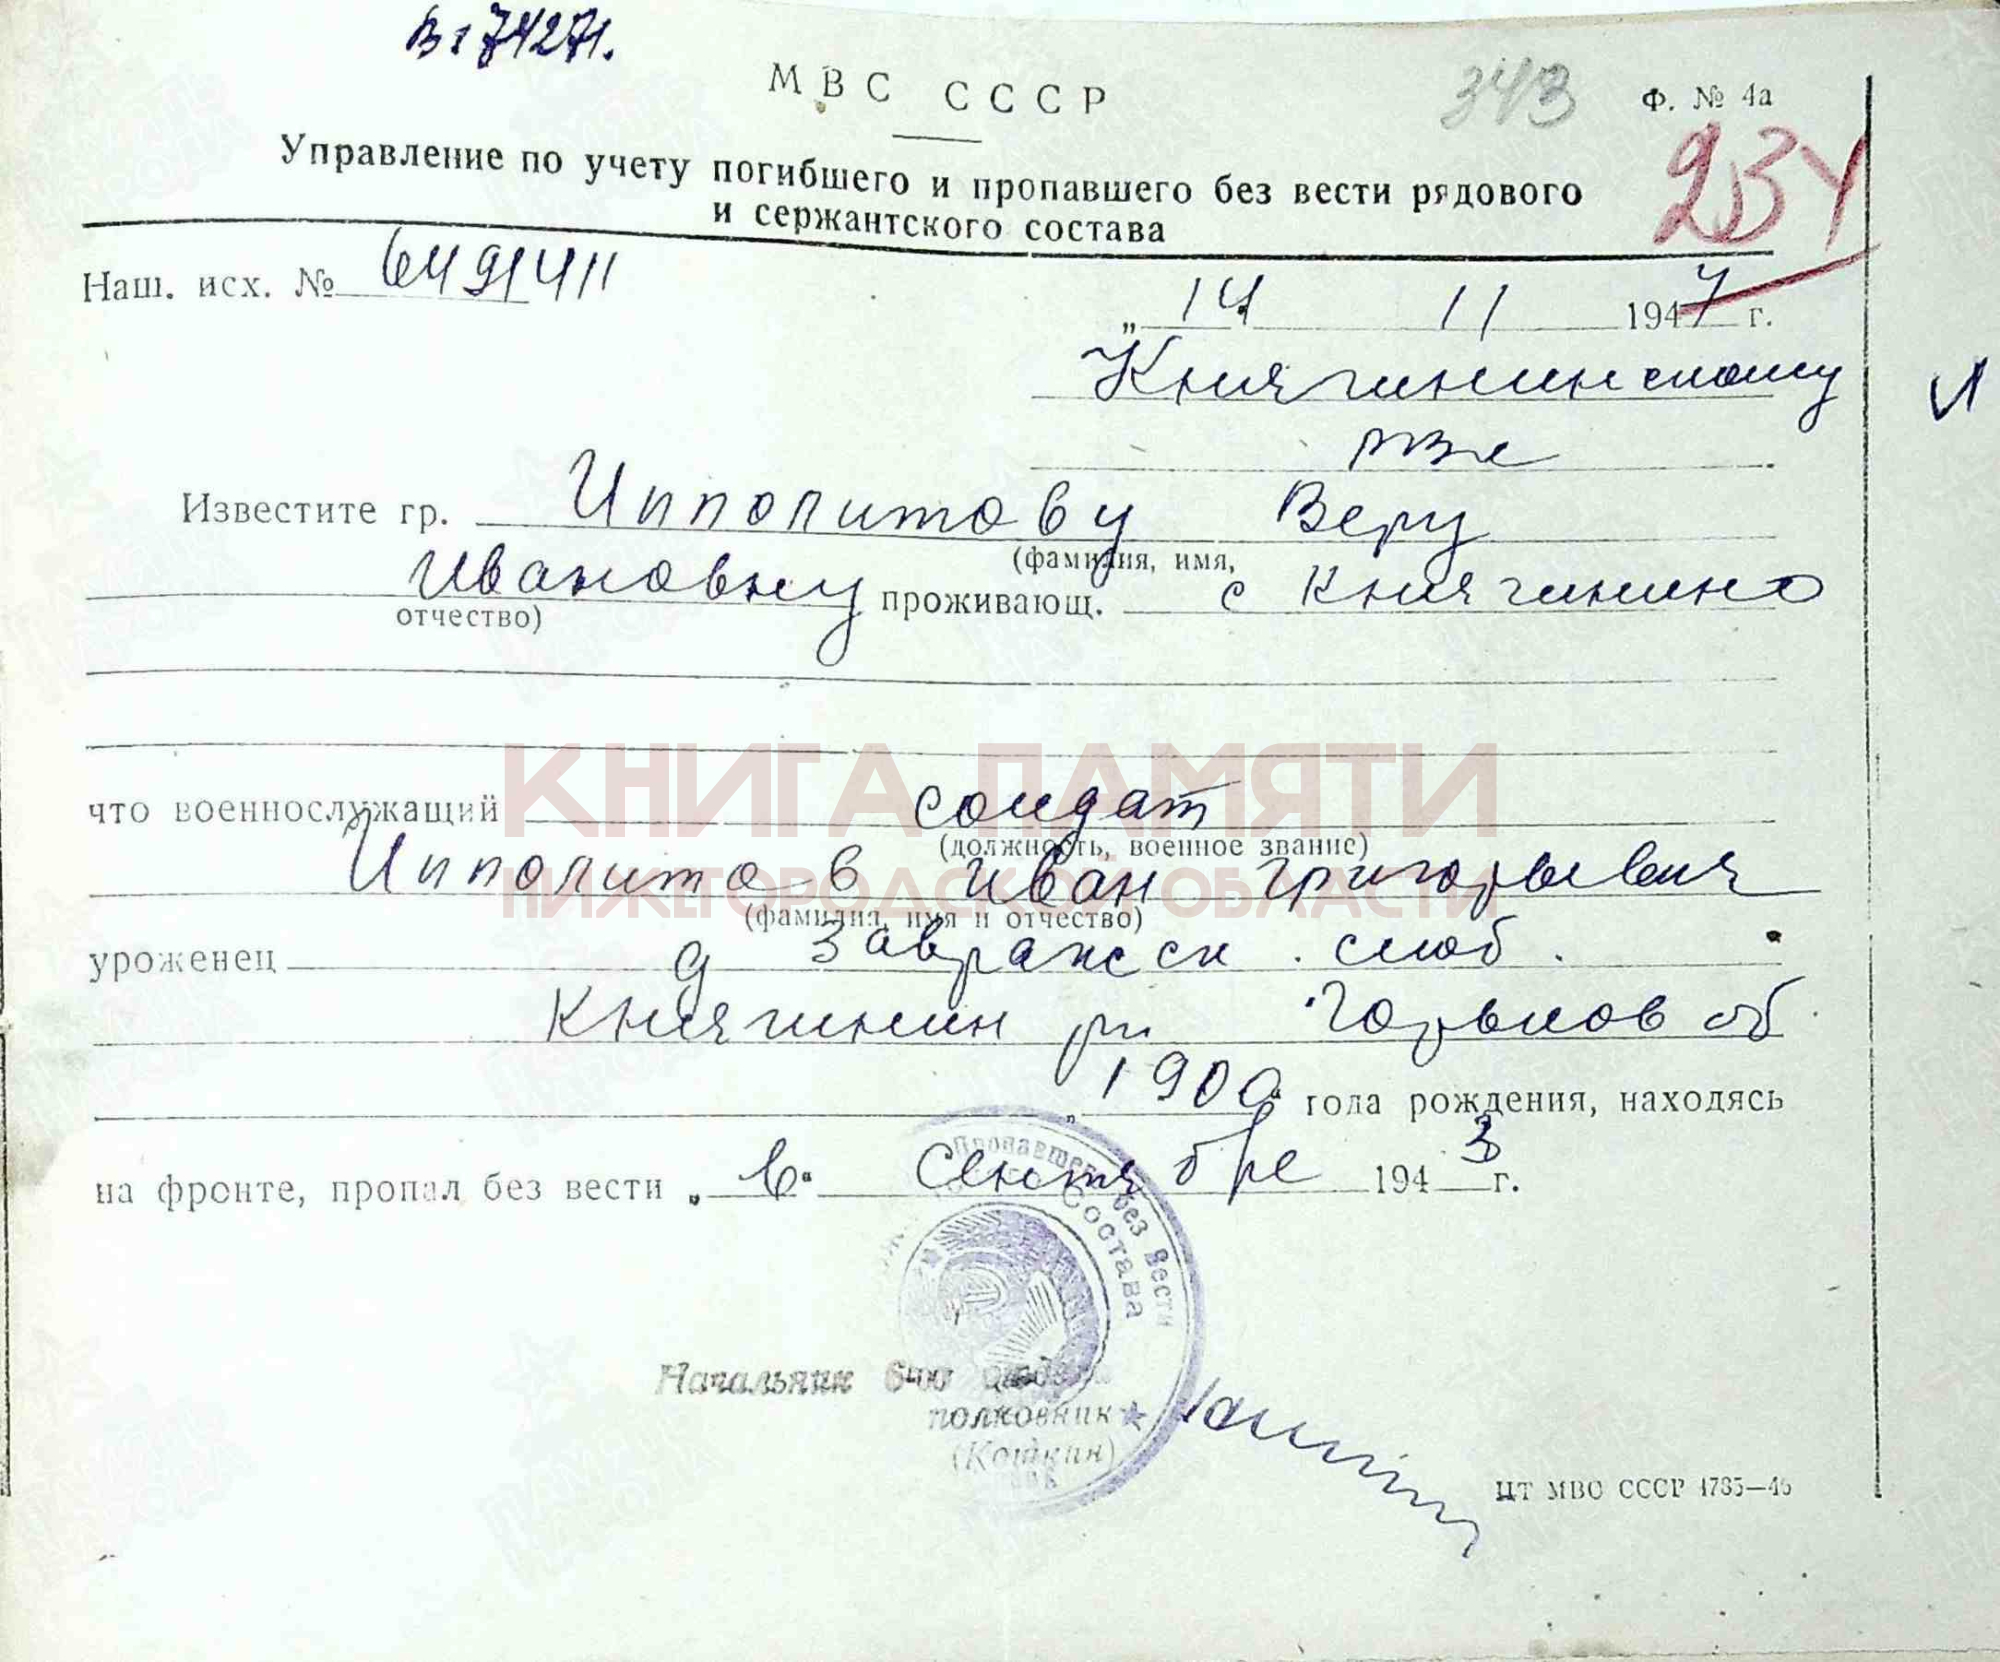 Вх 74271.
МВС СССР
343
Ф. № 4а
Управление по учету погибшего и пропавшего без вести рядового
и сержантского состава
Наш. исх. № 6491411
„ 14 11 1947 г.
Княгининскому
рвк
Известите гр. Ипполитову Веру
(фамилия, имя,
Ивановну проживающ. с Княгинино
отчество)
КНИГА ПАМЯТИ
что военнослужащий солдат
(должность, военное звание)
Ипполитов Иван Григорьевич
НИЖЕГОРОДСКОЙ ОБЛАСТИ
(фамилия, имя и отчество)
уроженец д Завражск. слоб.
Княгинин рн Горьков об.
„1900“ года рождения, находясь
на фронте, пропал без вести „в“ сентябре 1943 г.
пропавшего без вести
Состава
Начальник 6-го отдела
полковник
(Кошкин)
ЦТ МВО СССР 4785—46